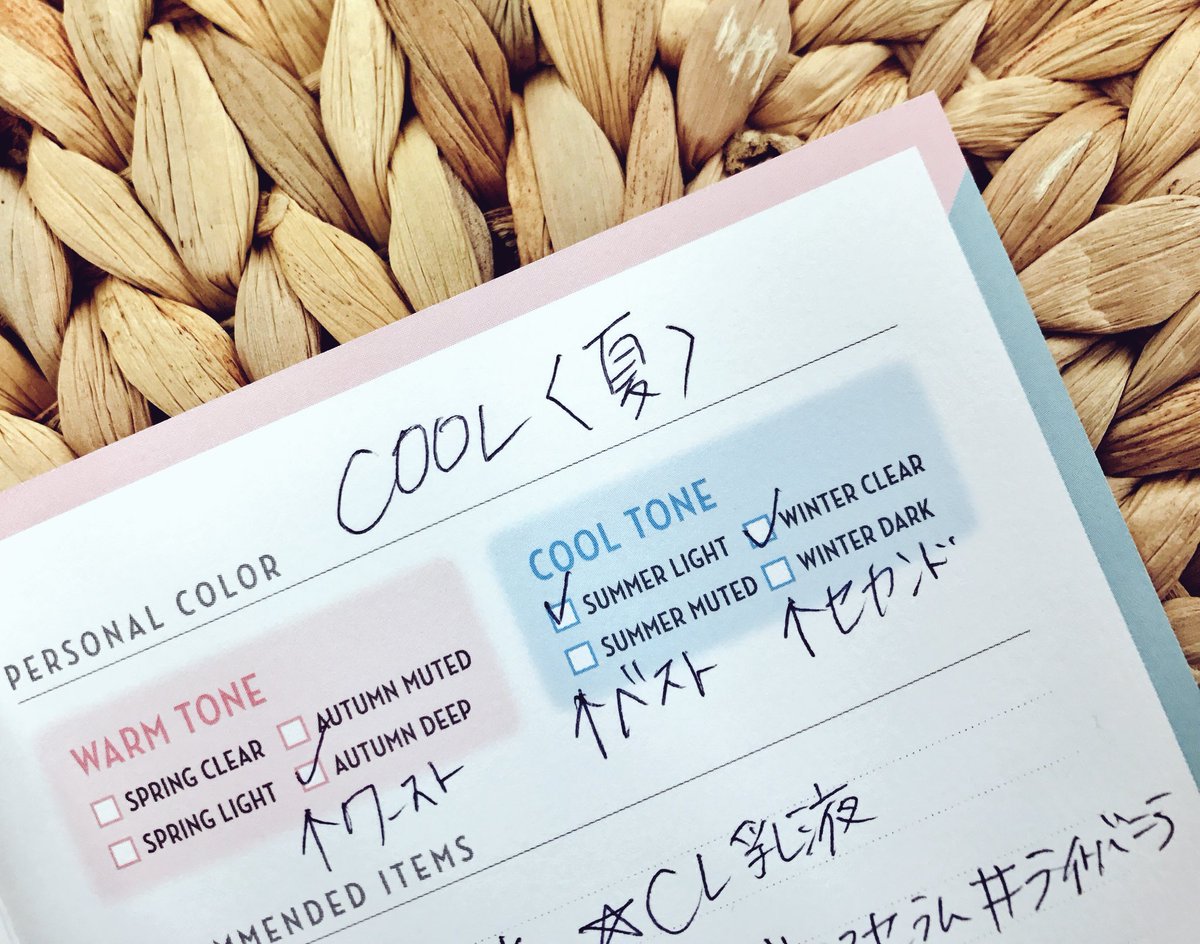 COOL〈夏〉
PERSONAL COLOR
WARM TONE
SPRING CLEAR
AUTUMN MUTED
SPRING LIGHT
AUTUMN DEEP
↑ワースト
COOL TONE
SUMMER LIGHT
WINTER CLEAR
SUMMER MUTED
WINTER DARK
↑ベスト
↑セカンド
MMENDED ITEMS
☆CL乳液
セラム#ライトバーラ